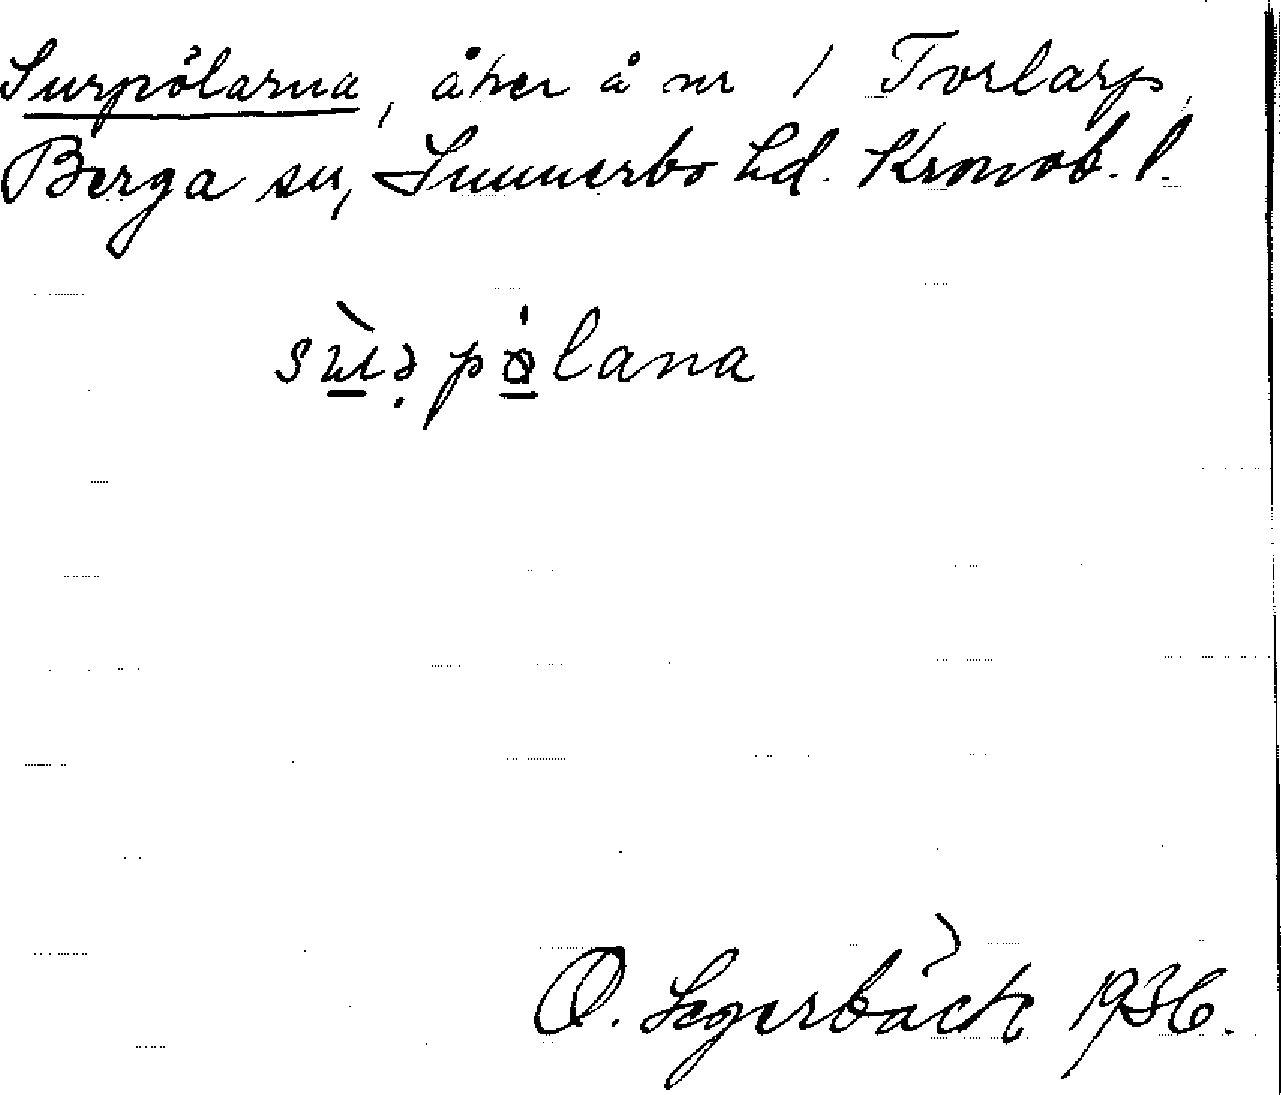 Surpölarna, åker å nr 1 Torlarp,
Berga sn, Sunnerbo hd. Kronob. l.
O. Segerbäck 1936.